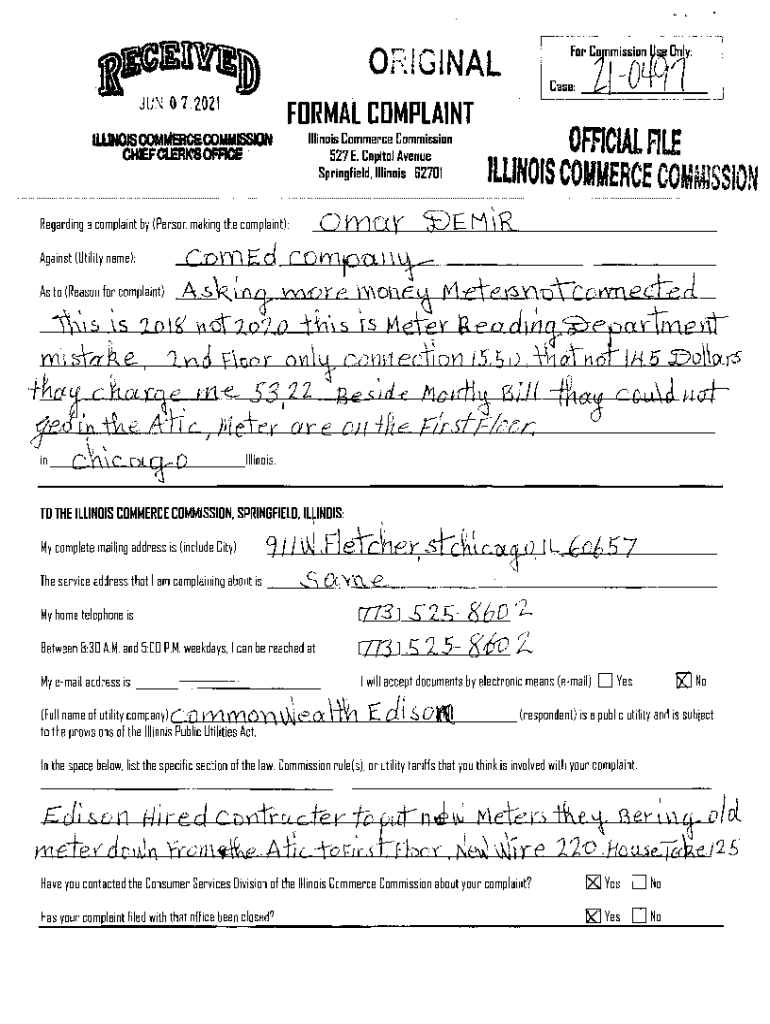 RECEIVED
JUN 07 2021
ILLINOIS COMMERCE COMMISSION
CHIEF CLERK'S OFFICE
ORIGINAL
FORMAL COMPLAINT
Illinois Commerce Commission
527 E. Capitol Avenue
Springfield, Illinois 62701
For Commission Use Only:
Case: 21-0497
OFFICIAL FILE
ILLINOIS COMMERCE COMMISSION
Regarding a complaint by (Person making the complaint): Omar DEMiR
Against (Utility name): ComEd company
As to (Reason for complaint) Asking more money Meters not connected
This is 2018 not 2020 this is Meter Reading Department
mistake, 2nd Floor only connection 15.51, that not 145 Dollars
thay charge me 53,22 Beside Montly Bill thay could not
ged in the Atic, Meter are on the First Floor.
in Chicago Illinois.
TO THE ILLINOIS COMMERCE COMMISSION, SPRINGFIELD, ILLINOIS:
My complete mailing address is (include City) 911 W. Fletcher, st chicago, IL 60657
The service address that I am complaining about is Same
My home telephone is [773] 525-8602
Between 8:30 A.M. and 5:00 P.M. weekdays, I can be reached at [773] 525-8602
My e-mail address is I will accept documents by electronic means (e-mail) Yes X No
(Full name of utility company) Commonwealth Edison (respondent) is a public utility and is subject
to the provisions of the Illinois Public Utilities Act.
In the space below, list the specific section of the law, Commission rule(s), or utility tariffs that you think is involved with your complaint.
Edison Hired Contructer to put new Meters they Bering old
meter down From the Atic to First Floor, New Wire 220 House Take 125
Have you contacted the Consumer Services Division of the Illinois Commerce Commission about your complaint? X Yes No
Has your complaint filed with that office been closed? X Yes No